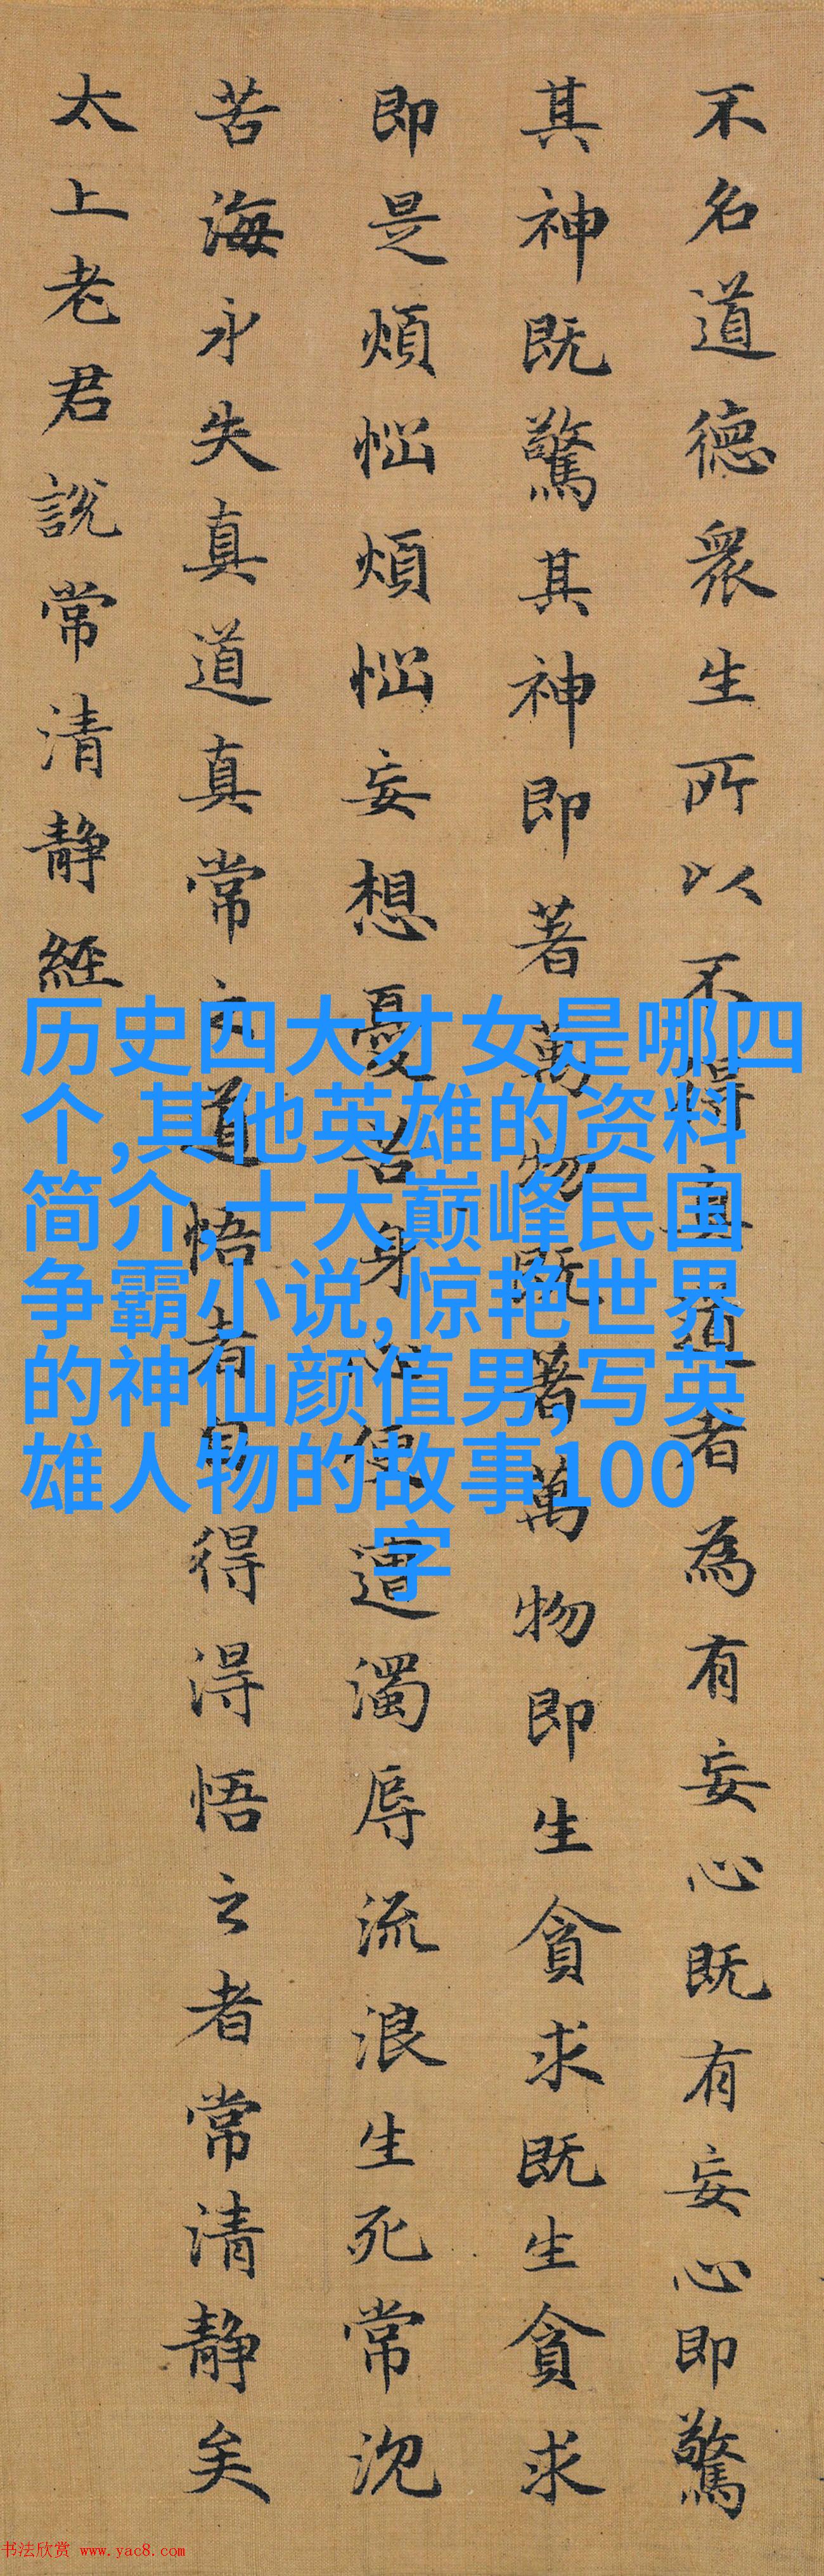 不名道德眾生所以不得真道者為有妄心既有妄心即驚
其神既驚其神即著萬物既著萬物即生貪求既生貪求
即是煩惱煩惱妄想憂苦身心便遭濁辱流浪生死常沉
苦海永失真道真常之道悟者自得得悟之者常清靜矣
太上老君說常清靜經
历史四大才女是哪四
个,其他英雄的资料
简介,十大巅峰民国
争霸小说,惊艳世界
的神仙颜值男,写英
雄人物的故事100
字
书法欣赏 www.yac8.com